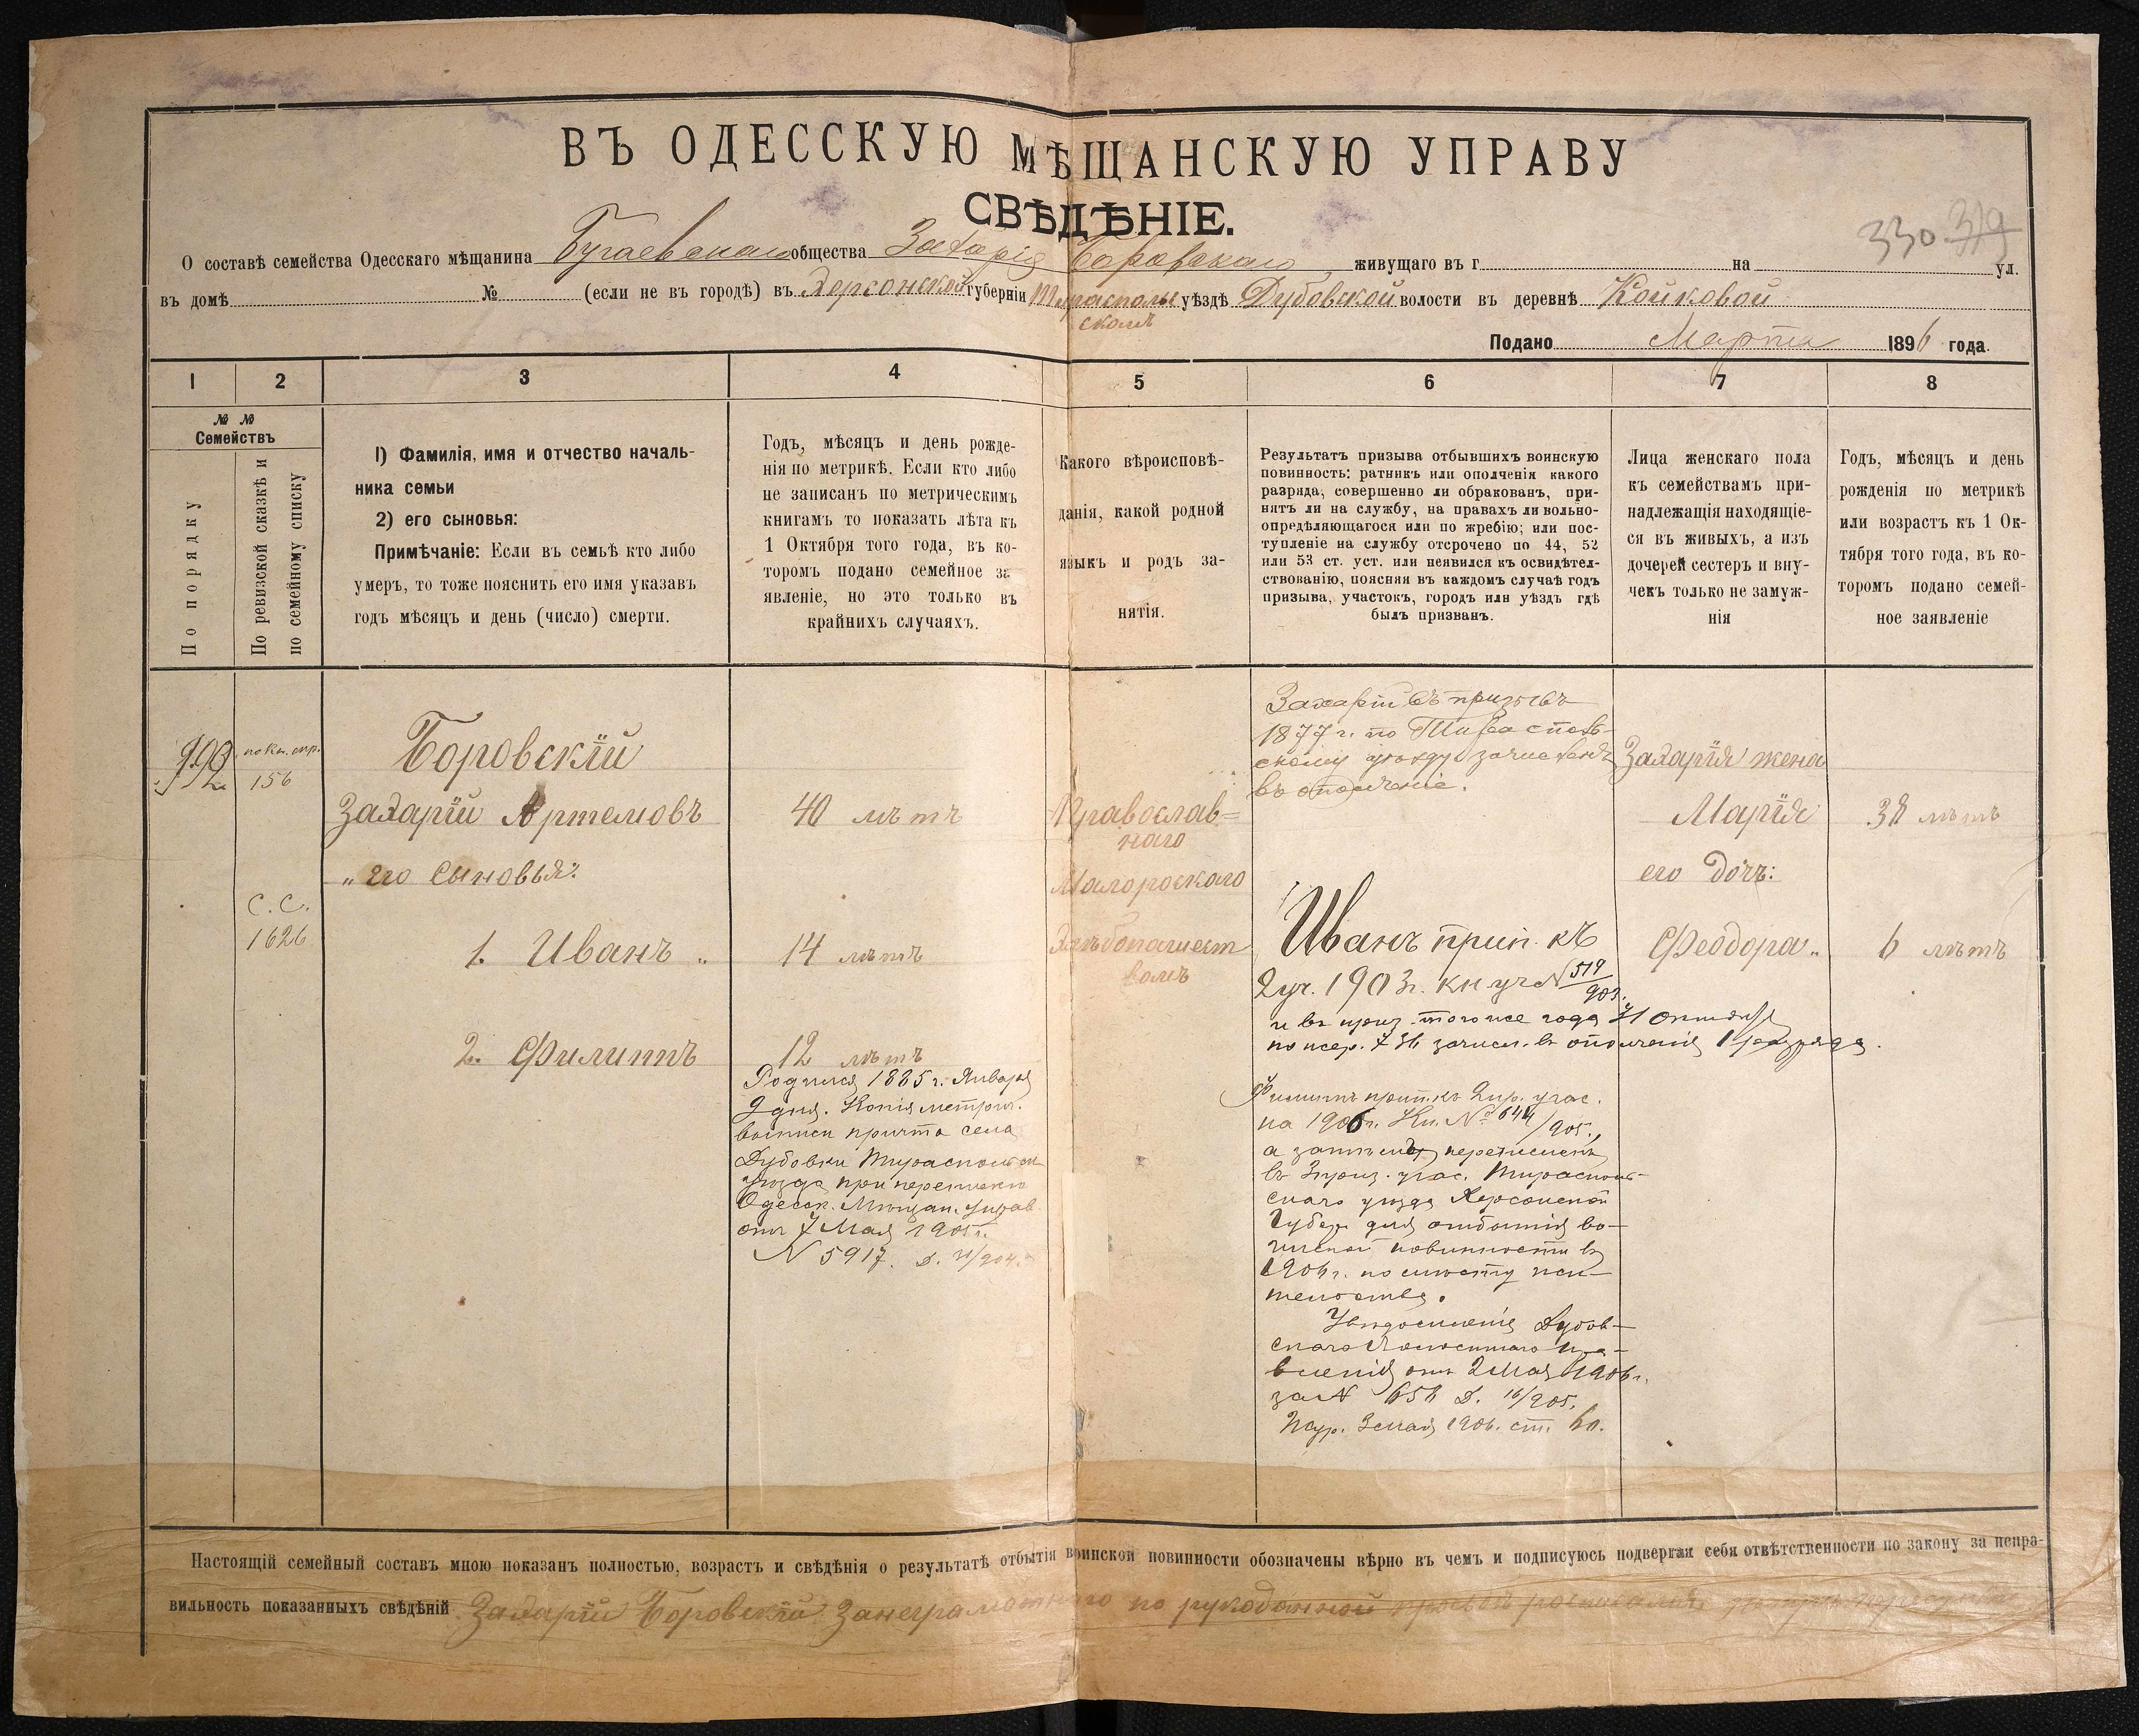 ВЪ ОДЕССКУЮ МѢЩАНСКУЮ УПРАВУ
СВѢДѢНІЕ.
330 319
О составѣ семейства Одесскаго мѣщанина Бугаевскаго общества Захарія Боровскаго живущаго въ г. на ул.
въ домѣ № (если не въ городѣ) въ Херсонской губерніи Тираспольскомъ уѣздѣ Дубовской волости въ деревнѣ Койковой
Подано Марта 1896 года.
1 2 3 4 5 6 7 8
№ №
Семействъ
По порядку
По ревизской сказкѣ и
по семейному списку
1) Фамилія, имя и отчество началь-
ника семьи
2) его сыновья:
Примѣчаніе: Если въ семьѣ кто либо
умеръ, то тоже пояснить его имя указавъ
годъ мѣсяцъ и день (число) смерти.
Годъ, мѣсяцъ и день рожде-
нія по метрикѣ. Если кто либо
не записанъ по метрическимъ
книгамъ то показать лѣта къ
1 Октября того года, въ ко-
торомъ подано семейное за
явленіе, но это только въ
крайнихъ случаяхъ.
Какого вѣроисповѣ-
данія, какой родной
языкъ и родъ за-
нятія.
Результатъ призыва отбывшихъ воинскую
повинность: ратникъ или ополченія какого
разряда, совершенно ли обракованъ, при-
нятъ ли на службу, на правахъ ли вольно-
опредѣляющагося или по жребію; или пос-
тупленіе на службу отсрочено по 44, 52
или 53 ст. уст. или неявился къ освидѣтел-
ствованію, поясняя въ каждомъ случаѣ годъ
призыва, участокъ, городъ или уѣздъ гдѣ
былъ призванъ.
Лица женскаго пола
къ семействамъ при-
надлежащія находящіе-
ся въ живыхъ, а изъ
дочерей сестеръ и вну-
чекъ только не замуж-
нія
Годъ, мѣсяцъ и день
рожденія по метрикѣ
или возрастъ къ 1 Ок-
тября того года, въ ко-
торомъ подано семей-
ное заявленіе
156
С. С.
1626
Боровскій
Захарій Артемовъ
„его сыновья:
1. Иванъ „
2. Филиппъ
40 лѣтъ
14 лѣтъ
12 лѣтъ
Родился 1885 г. Января
9 дня. Копія метрич.
выписи причта села
Дубовки Тираспольск
уѣзда при перепискѣ
Одесск. Мѣщан. Управ.
отъ 7 Мая 1905 г.
N 5917. Д. 21/904.
Православ=
наго
Малороскаго
Хлѣбопашест
вомъ
Захарій въ призывъ
1877 г. по Тирасполь-
скому уѣзду зачисленъ
въ ополченіе.
Иванъ прип. къ
2 уч. 1903 г. кн уч N 519/903.
и въ приз. того же года 21 Октября
по жер. 736 зачисл. въ ополченія 1 разряда.
Филиппъ прип. къ 2 пр. учас.
на 1906 г. Кн. № 644/905.,
а затѣмъ перечисленъ
въ 3 приз. учас. Тирасполь-
скаго уѣзда Херсонской
Губер. для отбытія во-
инской повинности въ
1906 г. по мѣсту жи-
тельства.
Увѣдомленіе Дубов-
скаго Волостнаго Пра-
вленія отъ 2 Мая 1906 г.
за N 656 Д. 16/905.
Жур. 3 мая 1906. ст. 60.
Захарія жена
Марія
его дочь:
Феодора „
38 лѣтъ
6 лѣтъ
Настоящій семейный составъ мною показанъ полностью, возрастъ и свѣдѣнія о результатѣ отбытія воинской повинности обозначены вѣрно въ чемъ и подписуюсь подвергая себя отвѣтственности по закону за непра-
вильность показанныхъ свѣдѣній Захарій Боровскій Занеграмотнаго по рукоданной просьбѣ росписался